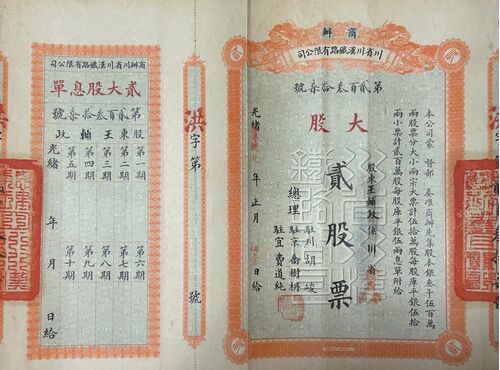 商辦
川省川漢鐵路有限公司
第貳百叁拾柒號
大股
本公司蒙 督部 奏准商辦先集股本銀叁千伍百萬
兩股票分大小兩宗大票計伍拾萬股每股庫平銀伍拾
兩小票計貳百萬股每股庫平銀伍兩息單附給
股東王輔政係川省
貳股票
總理
駐川胡峻
駐京喬樹枏
駐宜費道純
光緒 年正月 日給
洪字第 號
商辦川省川漢鐵路有限公司
貳大股息單
第貳百叁拾柒號
股東王輔政
第一期
第二期
第三期
第四期
第五期
第六期
第七期
第八期
第九期
第十期
光緒 年 月 日給
貳
貳
貳
貳